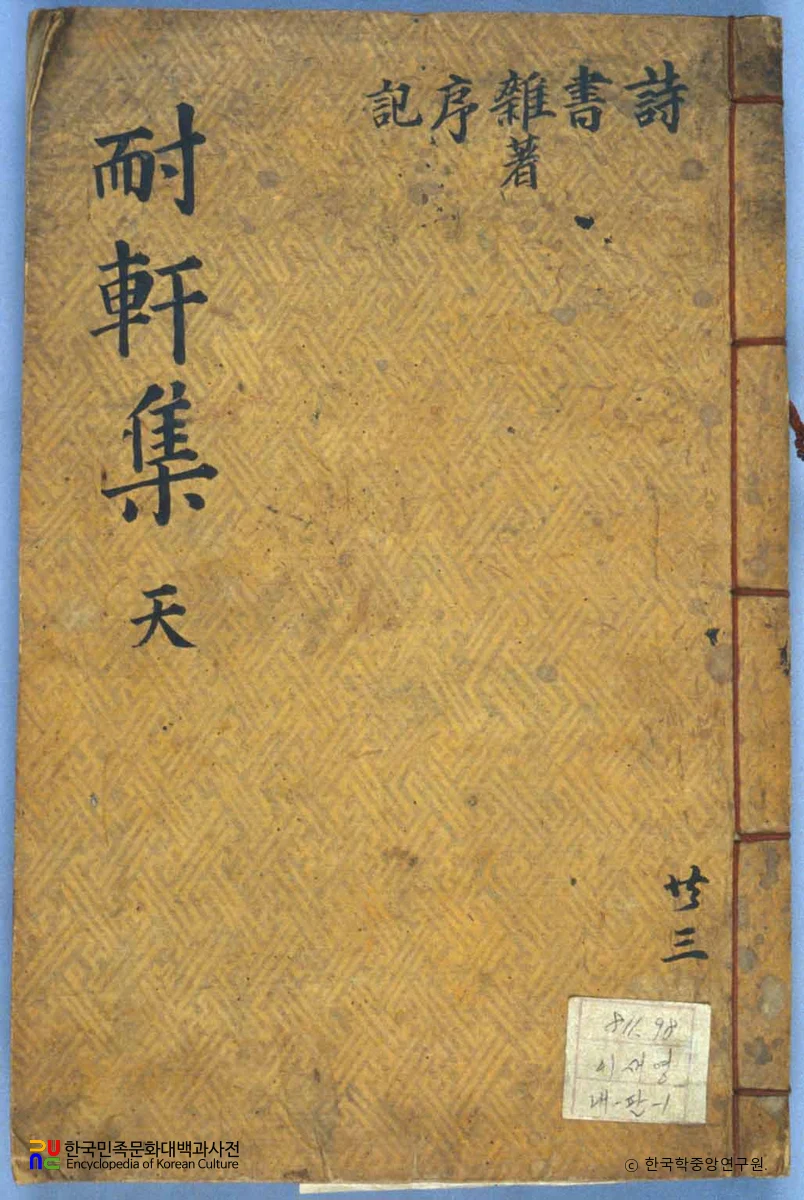 詩
書
雜著
序
記
耐軒集 天
共三
811.98
이재영
내-판-1
한국민족문화대백과사전
Encyclopedia of Korean Culture
ⓒ 한국학중앙연구원.